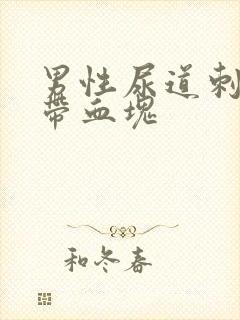 男性尿道刺
带血塊
和冬春